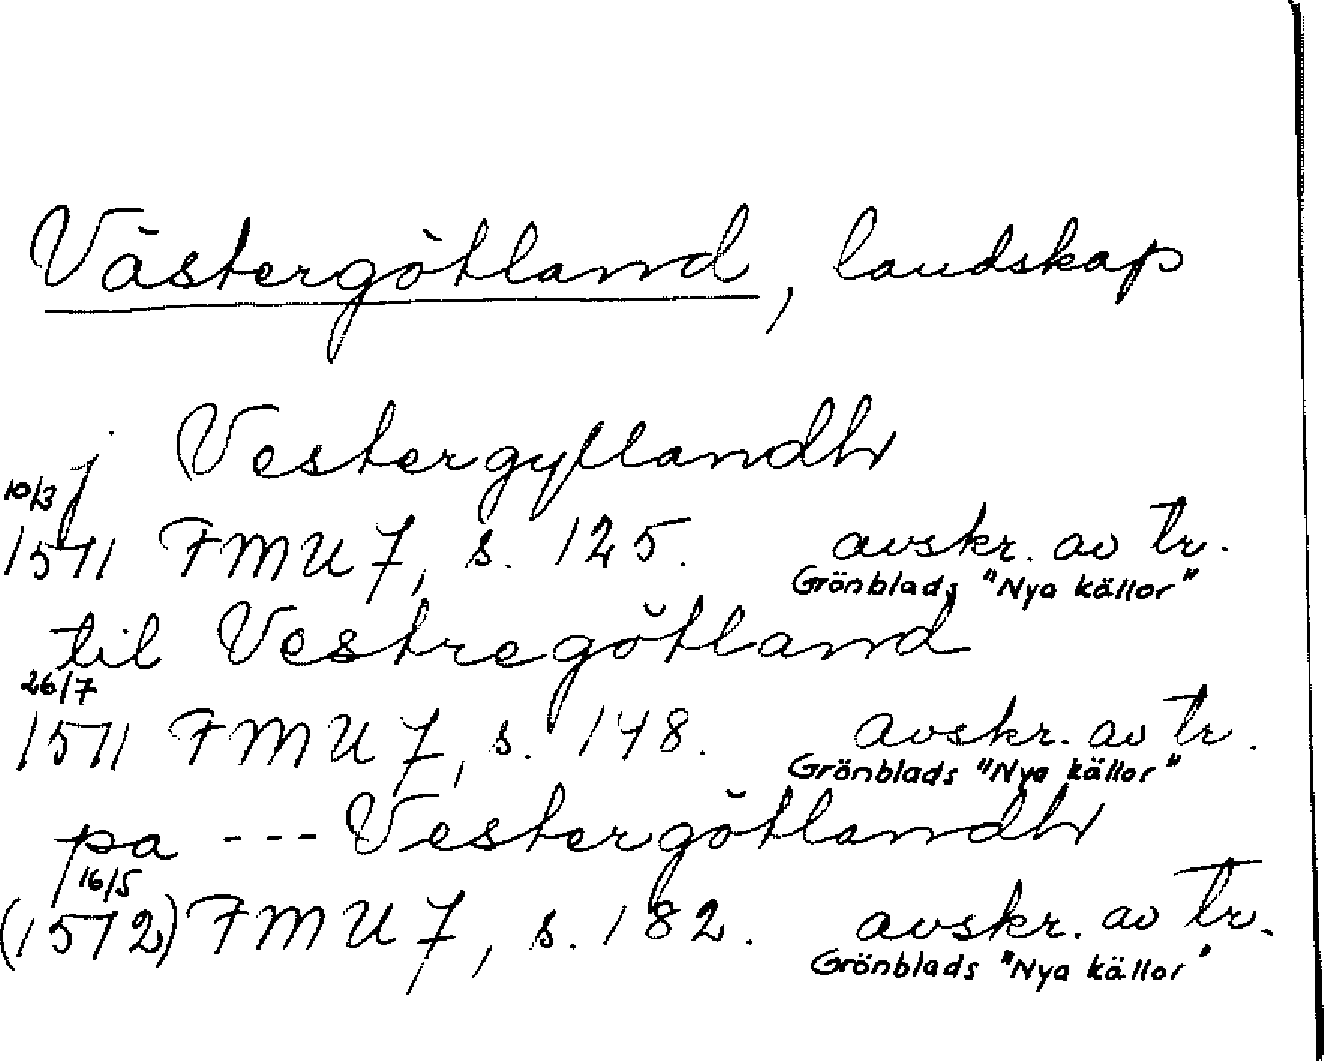 Västergötland, landskap
j Vestergytlandh
10/3
1571 FMU 7, s. 125. avskr. av tr.
Grönblads "Nya källor"
til Vestregötland
26/7
1571 FMU 7, s. 148. avskr. av tr.
Grönblads "Nya källor"
pa --- Vestergötlandh
16/5
(1572) FMU 7, s. 182. avskr. av tr.
Grönblads "Nya källor"